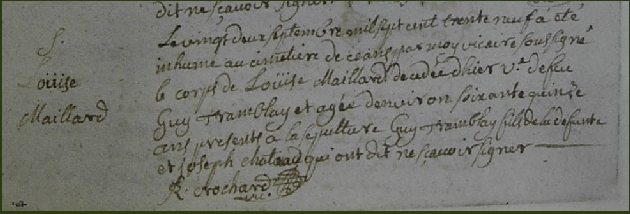 dit ne sçavoir signer
S.
Loüise
Maillard
Le vingt deux septembre mil sept cent trente neuf a été
inhumé au cimetiere de ceans par moy vicaire soussigné
le corps de Loüise Maillard decedée d'hier ve. defeu
Guy Tramblay et agée denviron soixante quinze
ans presents a la sepulture Guy Tramblay fils de la defunte
et joseph chateau qui ont dit ne sçavoir signer
R. Crochard
vic.